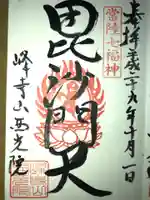 奉拝 平成二十九年十月一日
常陸七福神
毘沙門天
峰寺山西光院